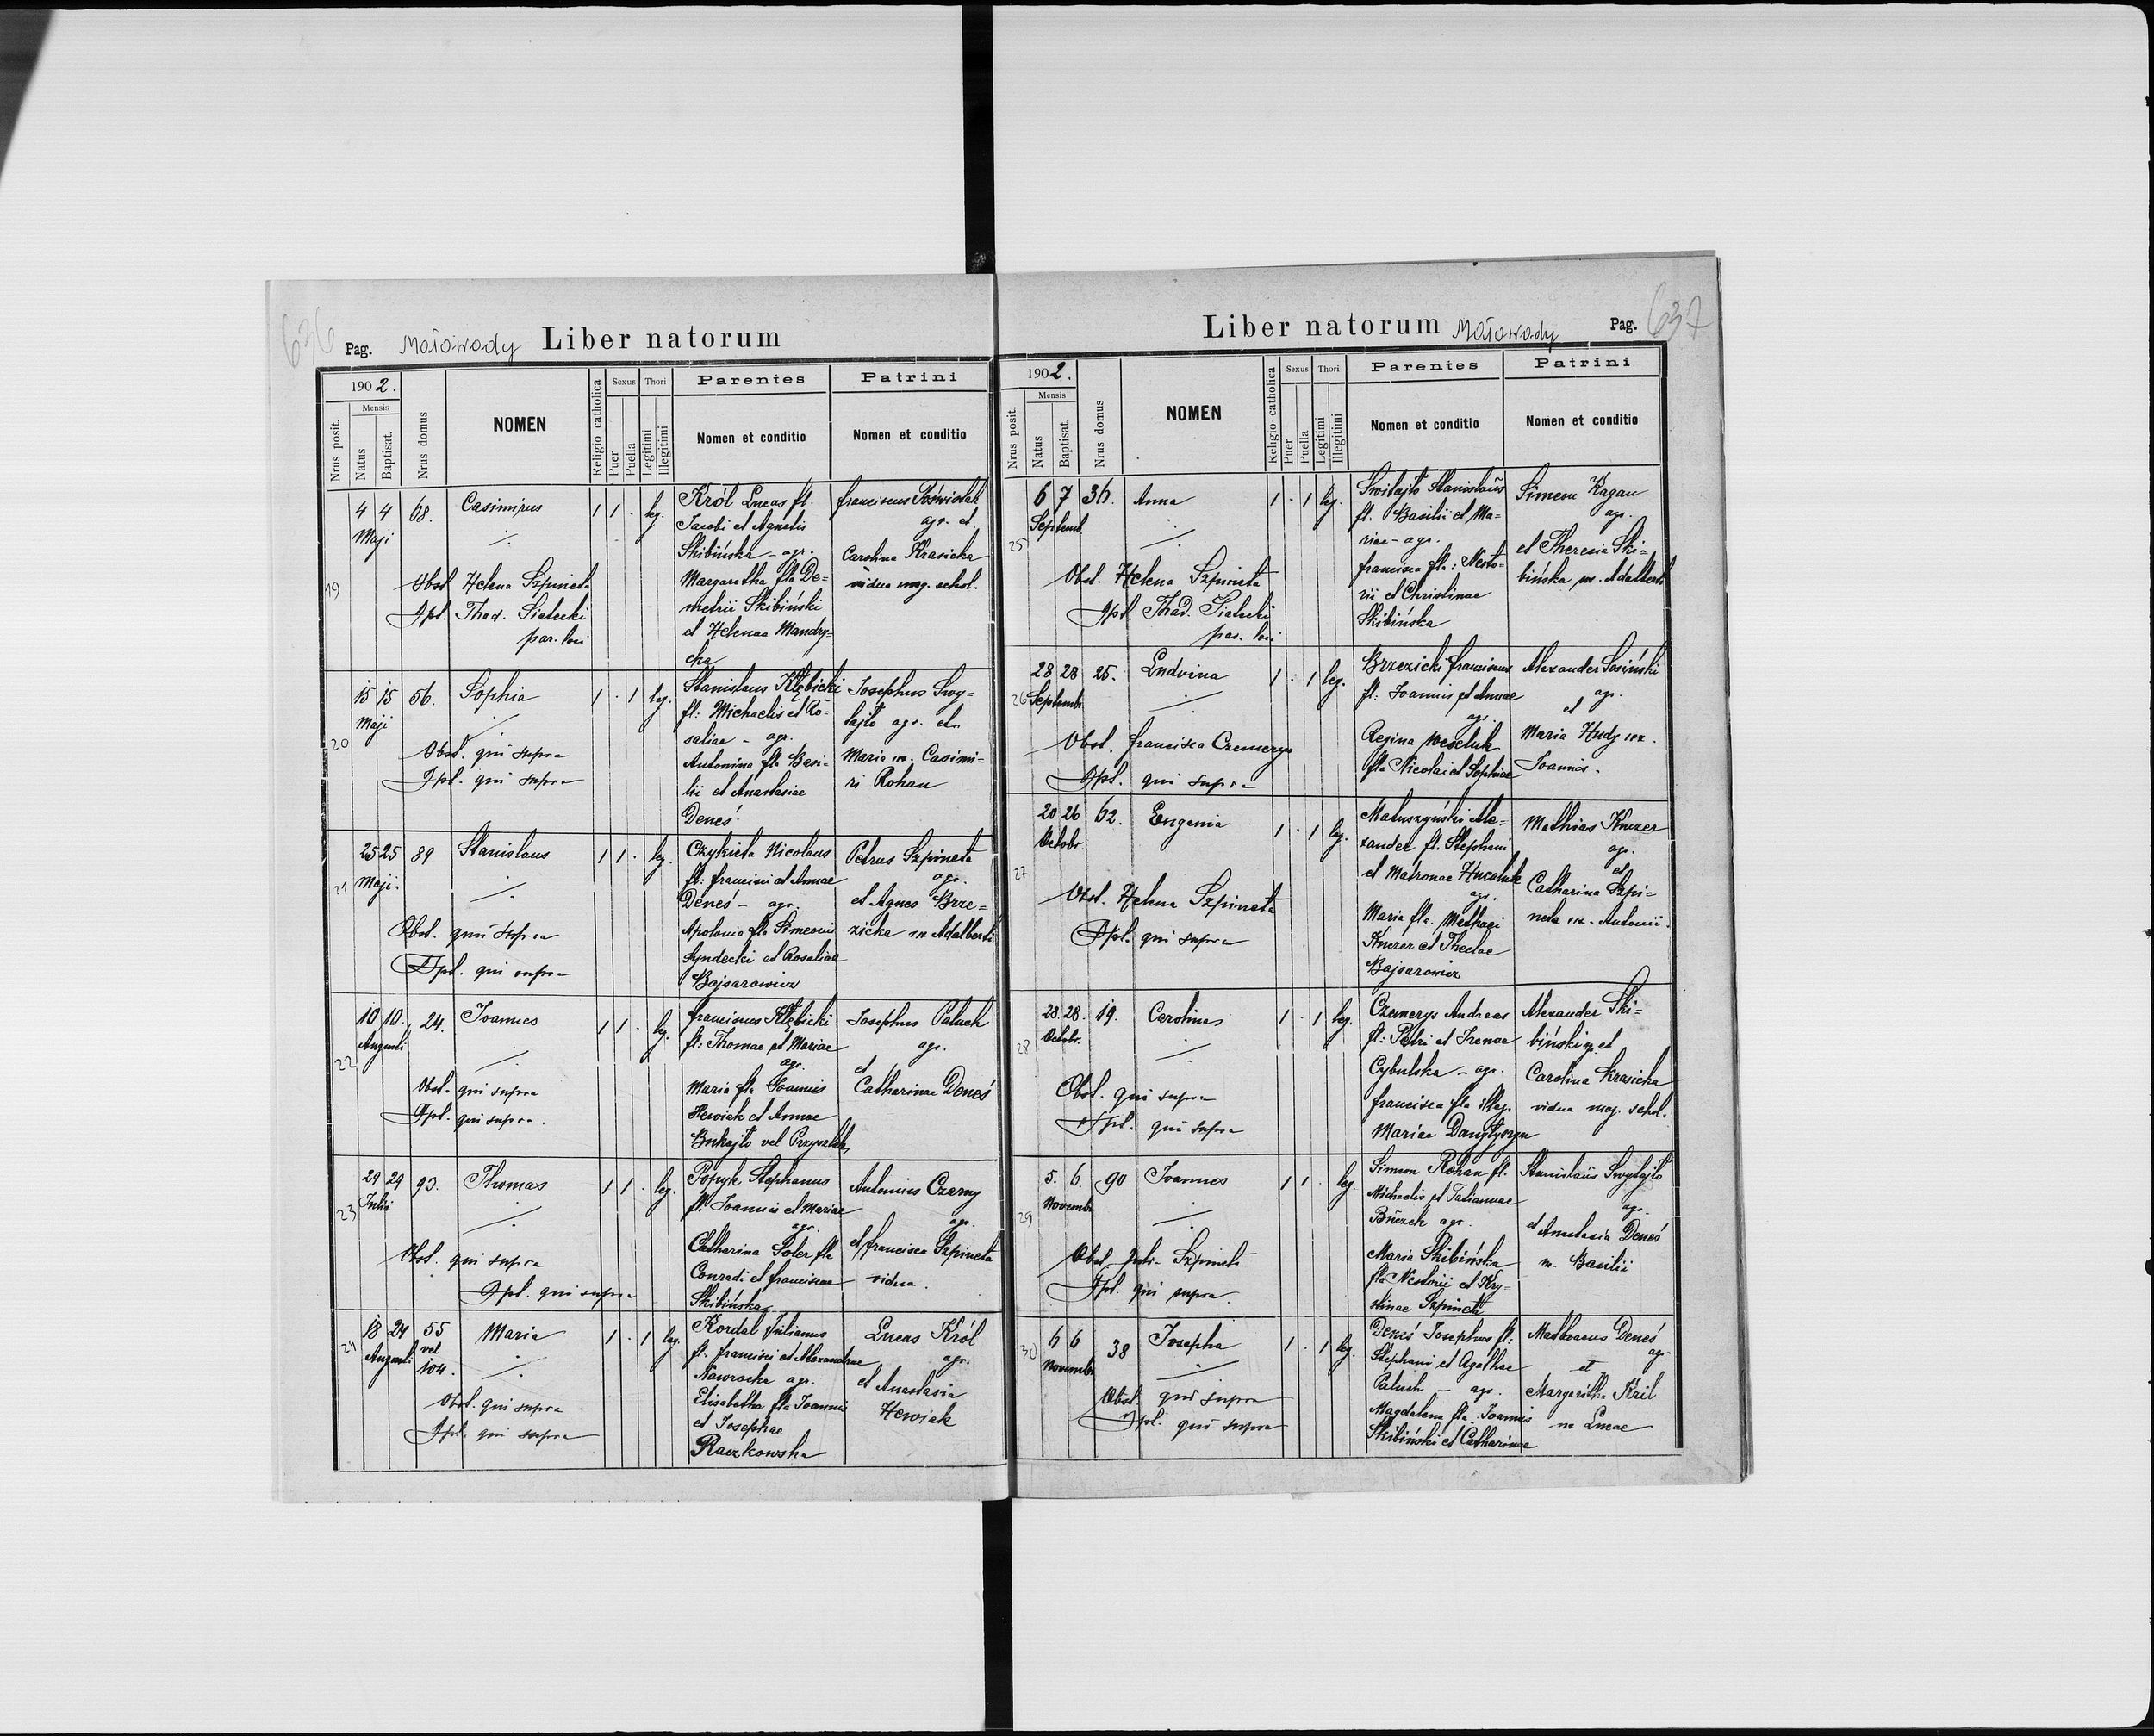 636
Pag. Małowody Liber natorum
1902.
Mensis
Nrus posit.
Natus
Baptisat.
Nrus domus
NOMEN
Religio catholica
Sexus
Puer
Puella
Thori
Legitimi
Illegitimi
Parentes
Nomen et conditio
Patrini
Nomen et conditio
19
4 4 68. Casimirus 1 1 . leg.
Maji
Obst. Helena Szpineta
Bpt. Thad. Sialecki
par. loci
Król Lucas fl.
Jacobi et Agnetis
Skibińska - agr.
Margaretha fla De-
metrii Skibiński
et Helenae Mandry-
cka
franciscus
agr. et
Carolina Krasicka
vidua mag. schol.
20
15 15 56. Sophia 1 . 1 leg.
Maji
Obst. qui supra
Bpt. qui supra
Stanislaus Kłębicki
fl: Michaelis et Ro-
saliae - agr.
Antonina fla Basi-
lii et Anastasiae
Deneś
Josephus Swy-
tajło agr. et
Maria ux. Casimi-
ri Rohan
21
25 25 89 Stanislaus 1 1 . leg.
Maji.
Obst. qui supra
Bpt. qui supra
Czykieta Nicolaus
fl: francisci et Annae
Deneś - agr.
Apolonia fla Simeonis
Lyndecki et Rosaliae
Bajsarowicz
Petrus Szpineta
agr.
et Agnes Brze-
zicka ux Adalberti
22
10 10. 24. Joannes 1 1 . leg.
Augusti
Obst. qui supra
Bpt. qui supra.
franciscus Kłębicki
fl: Thomae et Mariae
agr.
Maria fla Joannis
Hewiak et Annae
Bukajło vel
Josephus Paluch
agr.
et
Catharinae Deneś
23
29 29 93. Thomas 1 1 . leg.
Julii
Obst. qui supra
Bpt. qui supra
Popyk Stephanus
fl. Joannis et Mariae
agr.
Catharina Soler fla
Conradi et franciscae
Skibińska
Antonius Czerny
agr.
et francisca Szpineta
vidua.
24
18 24 55 Maria 1 . 1 leg.
Augusti vel
104.
Obst. qui supra
Bpt. qui supra
Kordal Julianus
fl. francisci et Alexandrae
Nawrocka agr.
Elisabetha fla Joannis
et Josephae
Raczkowska
Lucas Król
agr.
et Anastasia
Hewiak
Liber natorum Małowody Pag. 637
1902.
Mensis
Nrus posit.
Natus
Baptisat.
Nrus domus
NOMEN
Religio catholica
Sexus
Puer
Puella
Thori
Legitimi
Illegitimi
Parentes
Nomen et conditio
Patrini
Nomen et conditio
25
6 7 36. Anna 1 . 1 leg.
Septemb.
Obst. Helena Szpineta
Bpt. Thad. Sialecki
par. loci
Switajło Stanislaus
fl. Basilii et Ma-
riae - agr.
francisca fla: Nesto-
rii et Christinae
Skibińska
Simeon Kagan
agr.
et Theresia Ski-
bińska ux. Adalberti
26
28 28 25. Ludvina 1 . 1 leg.
Septemb.
Obst. francisca Czemerys
Bpt. qui supra
Brzezicki franciscus
fl: Joannis et Annae
agr.
Regina Weseluk
fla Nicolai et Sophiae
Alexander Sosiński
agr.
et
Maria Hudz ux.
Joannis.
27
20 26 62. Eugenia 1 . 1 leg.
Octobr.
Obst. Helena Szpineta
Bpt. qui supra
Matuszyński Ale-
xander fl. Stephani
et Matronae Hucaluk
agr.
Maria fla. Mathaei
Knezer et Theclae
Bajsarowicz
Mathias Knezer
agr.
et
Catharina Szpi-
neta ux. Antonii.
28
28. 28. 19. Carolina 1 . 1 leg.
Octobr.
Obst. qui supra
Bpt. qui supra
Czemerys Andreas
fl: Petri et Irenae
Cybulska - agr.
francisca fla illeg.
Mariae
Alexander Ski-
biński et
Carolina Krasicka
vidua mag. schol.
29
5. 6. 90 Joannes 1 1 . leg.
Novemb.
Obst. Szpineta
Bpt. qui supra
Simon Rohan fl.
Michaelis et Tatiannae
agr.
Maria Skibińska
fla Nestorii et Kry-
stinae Szpineta
Stanislaus Swytajło
agr.
et Anastasia Deneś
ux. Basilii
30
6 6 38 Josepha 1 . 1 leg.
Novemb.
Obst. qui supra
Bpt. qui supra
Deneś Josephus fl:
Stephani et Agathae
Paluch - agr.
Magdalena fla. Joannis
Skibiński et Catharinae
Deneś
agr.
et
Margaritha Król
ux Lucae